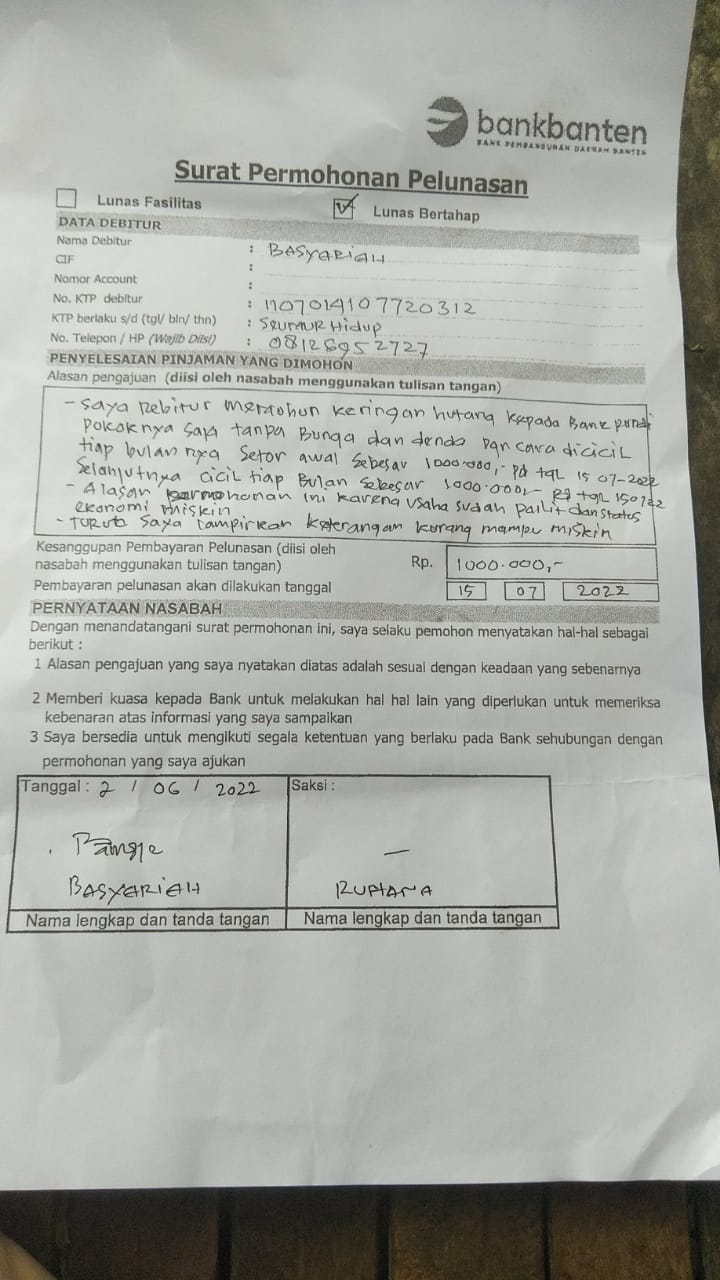 bankbanten
BANK PEMBANGUNAN DAERAH BANTEN
Surat Permohonan Pelunasan
Lunas Fasilitas
Lunas Bertahap
DATA DEBITUR
Nama Debitur : BASYARIAH
CIF :
Nomor Account :
No. KTP debitur : 1107014107720312
KTP berlaku s/d (tgl/ bln/ thn) : SEUMUR Hidup
No. Telepon / HP (Wajib Diisi) : 08126952727
PENYELESAIAN PINJAMAN YANG DIMOHON
Alasan pengajuan (diisi oleh nasabah menggunakan tulisan tangan)
- Saya Debitur memohon keringan hutang kepada Bank pundi
pokoknya saja tanpa Bunga dan denda Dgn cara dicicil
tiap bulannya Setor awal sebesar 1000.000,- pd tgl 15 07-2022
Selanjutnya cicil tiap Bulan sebesar 1000.000,-
- Alasan permohonan ini karena usaha sudah pailit dan status
ekonomi miskin
- Turut Saya lampirkan keterangan kurang mampu miskin
Kesanggupan Pembayaran Pelunasan (diisi oleh
nasabah menggunakan tulisan tangan) Rp. 1000.000,-
Pembayaran pelunasan akan dilakukan tanggal 15 07 2022
PERNYATAAN NASABAH
Dengan menandatangani surat permohonan ini, saya selaku pemohon menyatakan hal-hal sebagai
berikut :
1 Alasan pengajuan yang saya nyatakan diatas adalah sesuai dengan keadaan yang sebenarnya
2 Memberi kuasa kepada Bank untuk melakukan hal hal lain yang diperlukan untuk memeriksa
kebenaran atas informasi yang saya sampaikan
3 Saya bersedia untuk mengikuti segala ketentuan yang berlaku pada Bank sehubungan dengan
permohonan yang saya ajukan
Tanggal : 2 / 06 / 2022
Saksi :
BASYARIAH
Nama lengkap dan tanda tangan
Nama lengkap dan tanda tangan